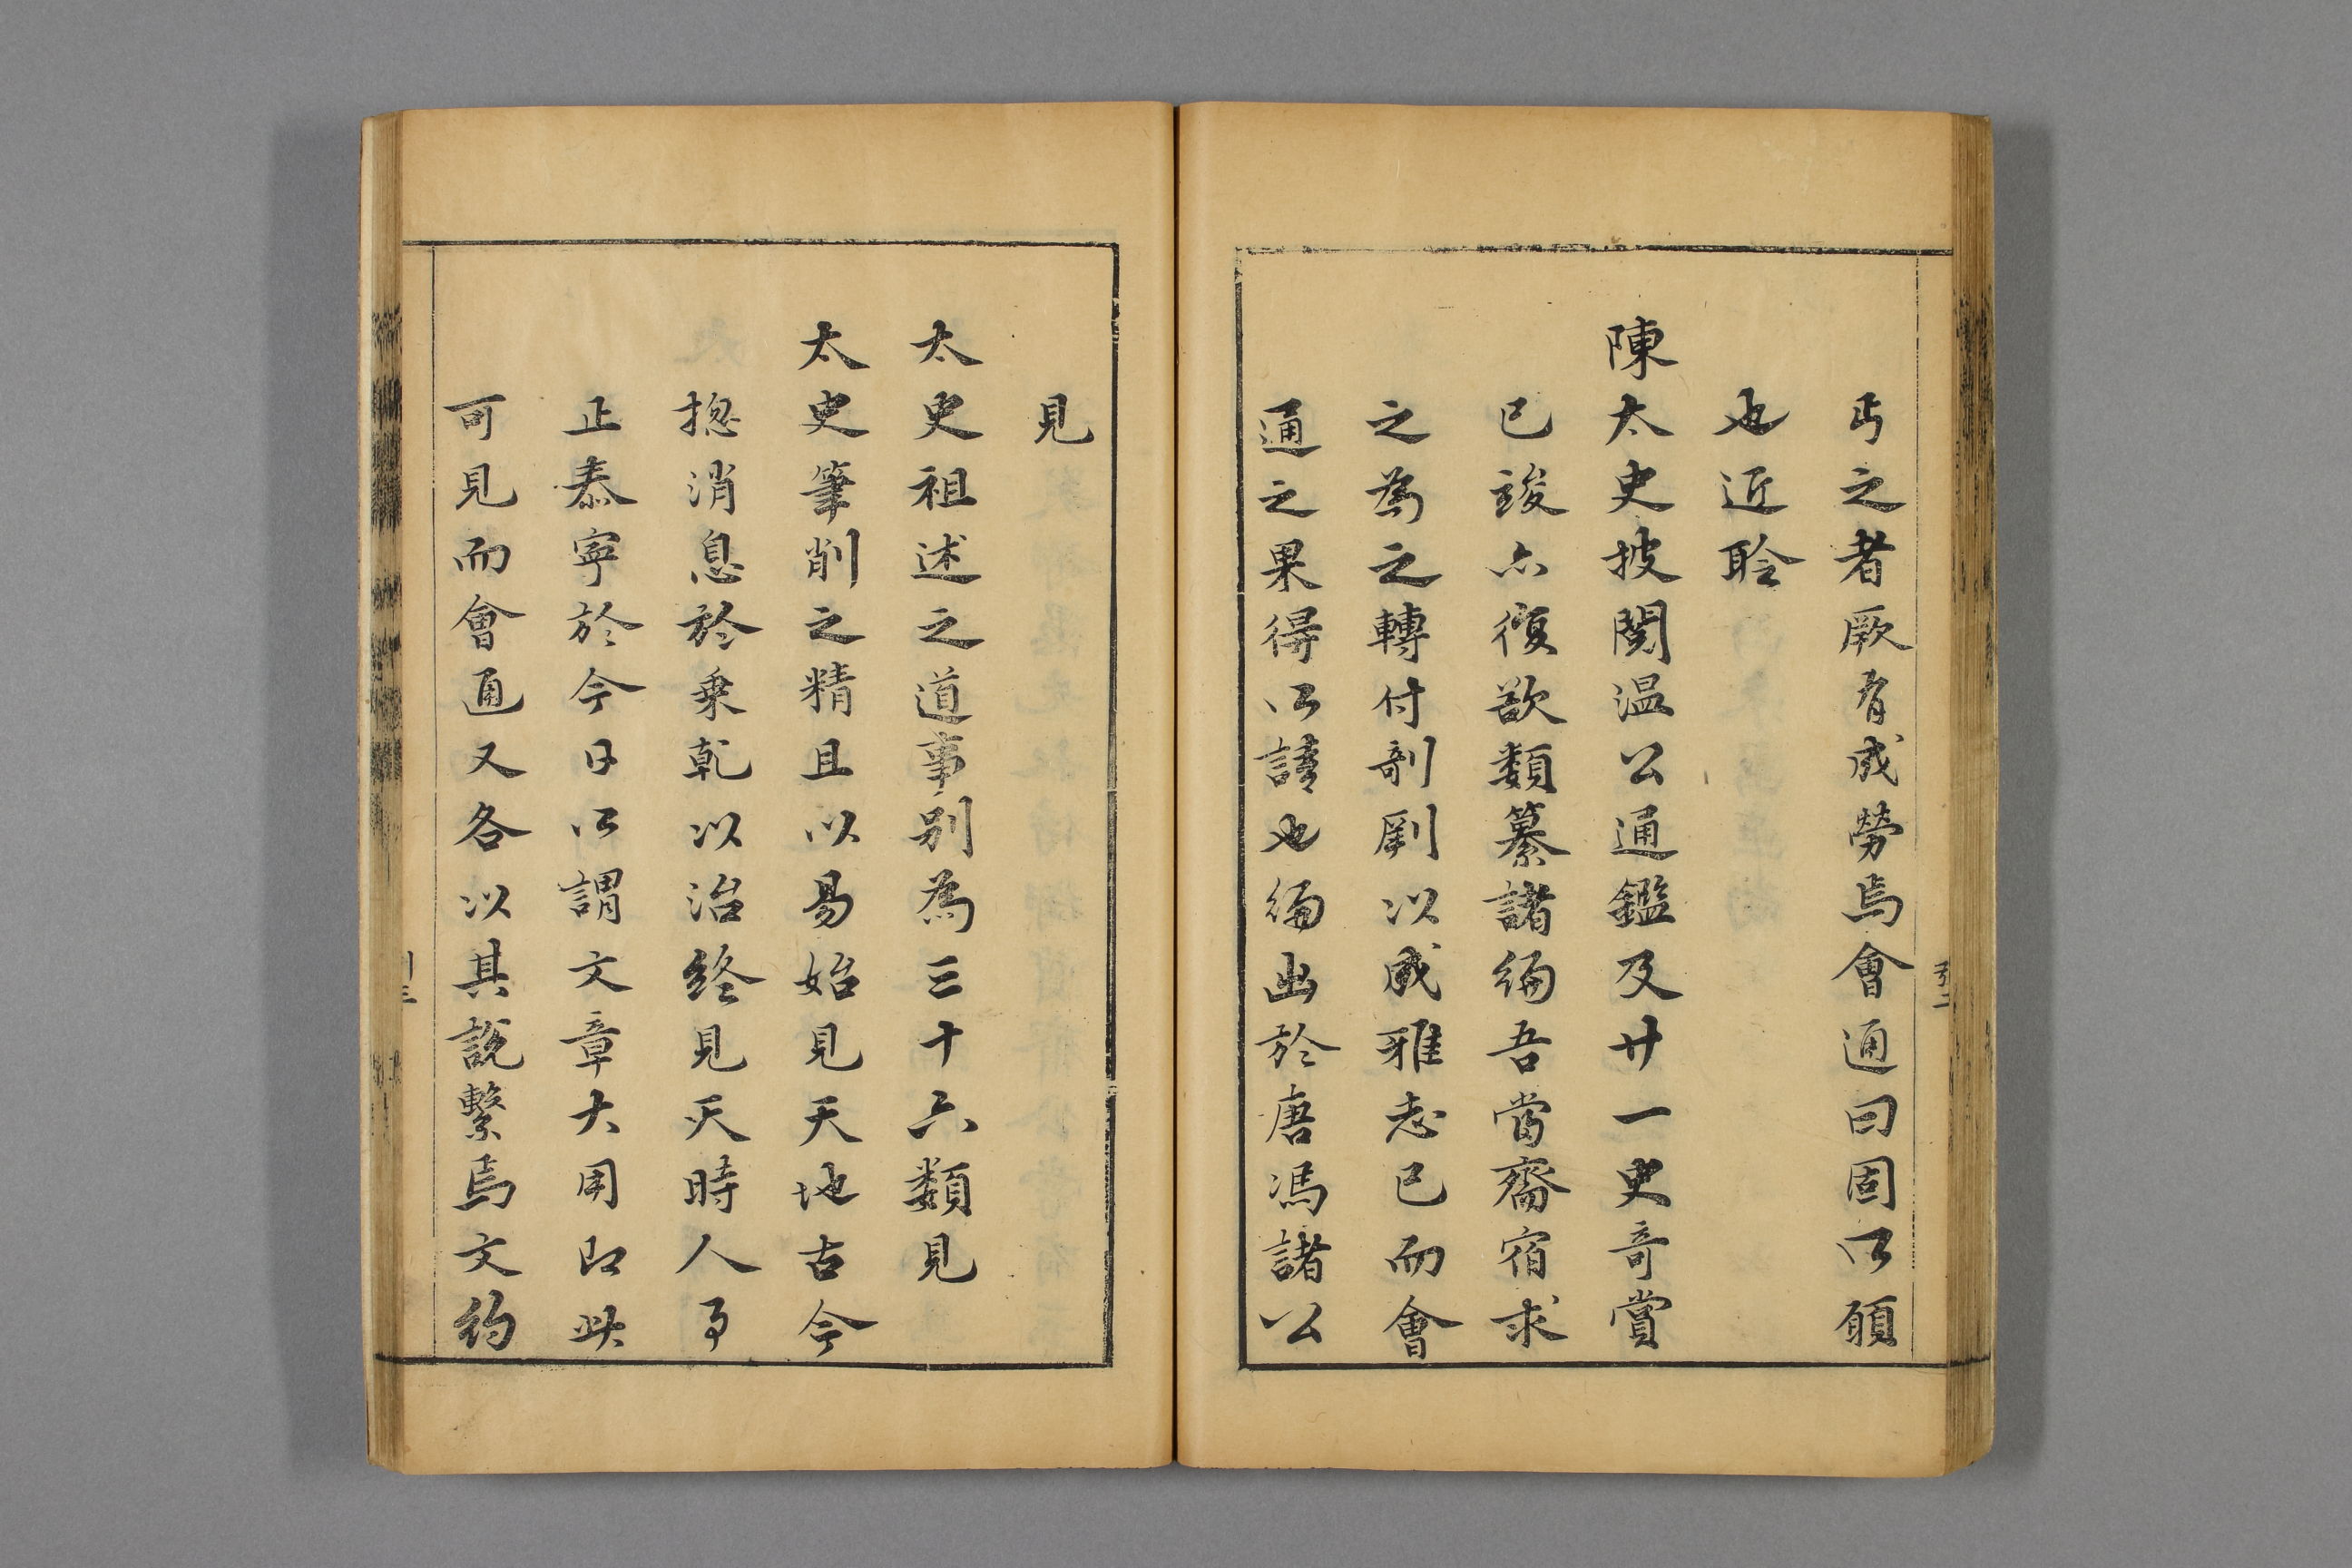 丐之者厥有成勞焉會通曰固所願
也近聆
陳太史披閱温公通鑑及廿一史奇賞
已竣亦復欲類纂諸编吾當齋宿求
之為之轉付剞劂以成雅志已而會
通之果得所請也编出於唐馮諸公
引二
見
太史祖述之道事别為三十六類見
太史筆削之精且以易始見天地古今
揔消息於乗乾以治終見天時人事
正泰寧於今日所謂文章大用即此
可見而會通又各以其說繫焉文約